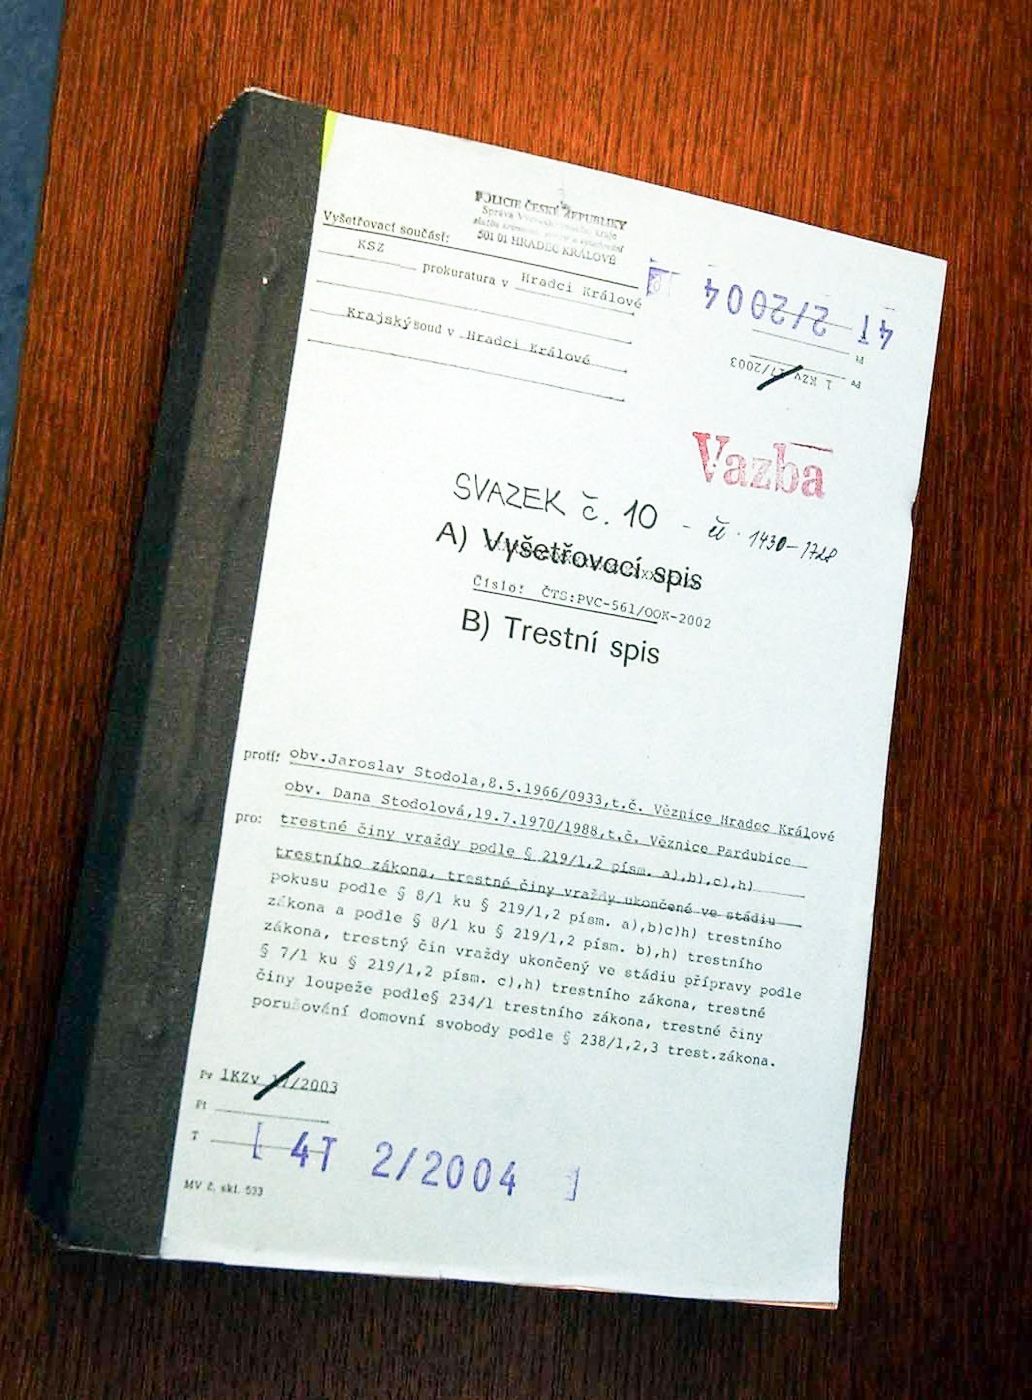 POLICIE ČESKÉ REPUBLIKY
Správa kraje
501 01 HRADEC KRÁLOVÉ
Vyšetřovací součást:
KSZ
prokuratura v Hradci Králové
Krajský soud v Hradci Králové
4T 2/2004
Pt
Pv 1 KZv 17/2003
Vazba
SVAZEK č. 10 - čl. 1430-1728
A) Vyšetřovací spis
Číslo: ČTS:PVC-561/OOK-2002
B) Trestní spis
proti: obv.Jaroslav Stodola,8.5.1966/0933,t.č. Věznice Hradec Králové
obv. Dana Stodolová,19.7.1970/1988,t.č. Věznice Pardubice
pro: trestné činy vraždy podle § 219/1,2 písm. a),b),c),h)
trestního zákona, trestné činy vraždy ukončené ve stádiu
pokusu podle § 8/1 ku § 219/1,2 písm. a),b)c)h) trestního
zákona a podle § 8/1 ku § 219/1,2 písm. b),h) trestního
zákona, trestný čin vraždy ukončený ve stádiu přípravy podle
§ 7/1 ku § 219/1,2 písm. c),h) trestního zákona, trestné
činy loupeže podle§ 234/1 trestního zákona, trestné činy
porušování domovní svobody podle § 238/1,2,3 trest.zákona.
Pv 1KZv 17/2003
Pt
T [ 4T 2/2004 ]
MV č. skl. 533